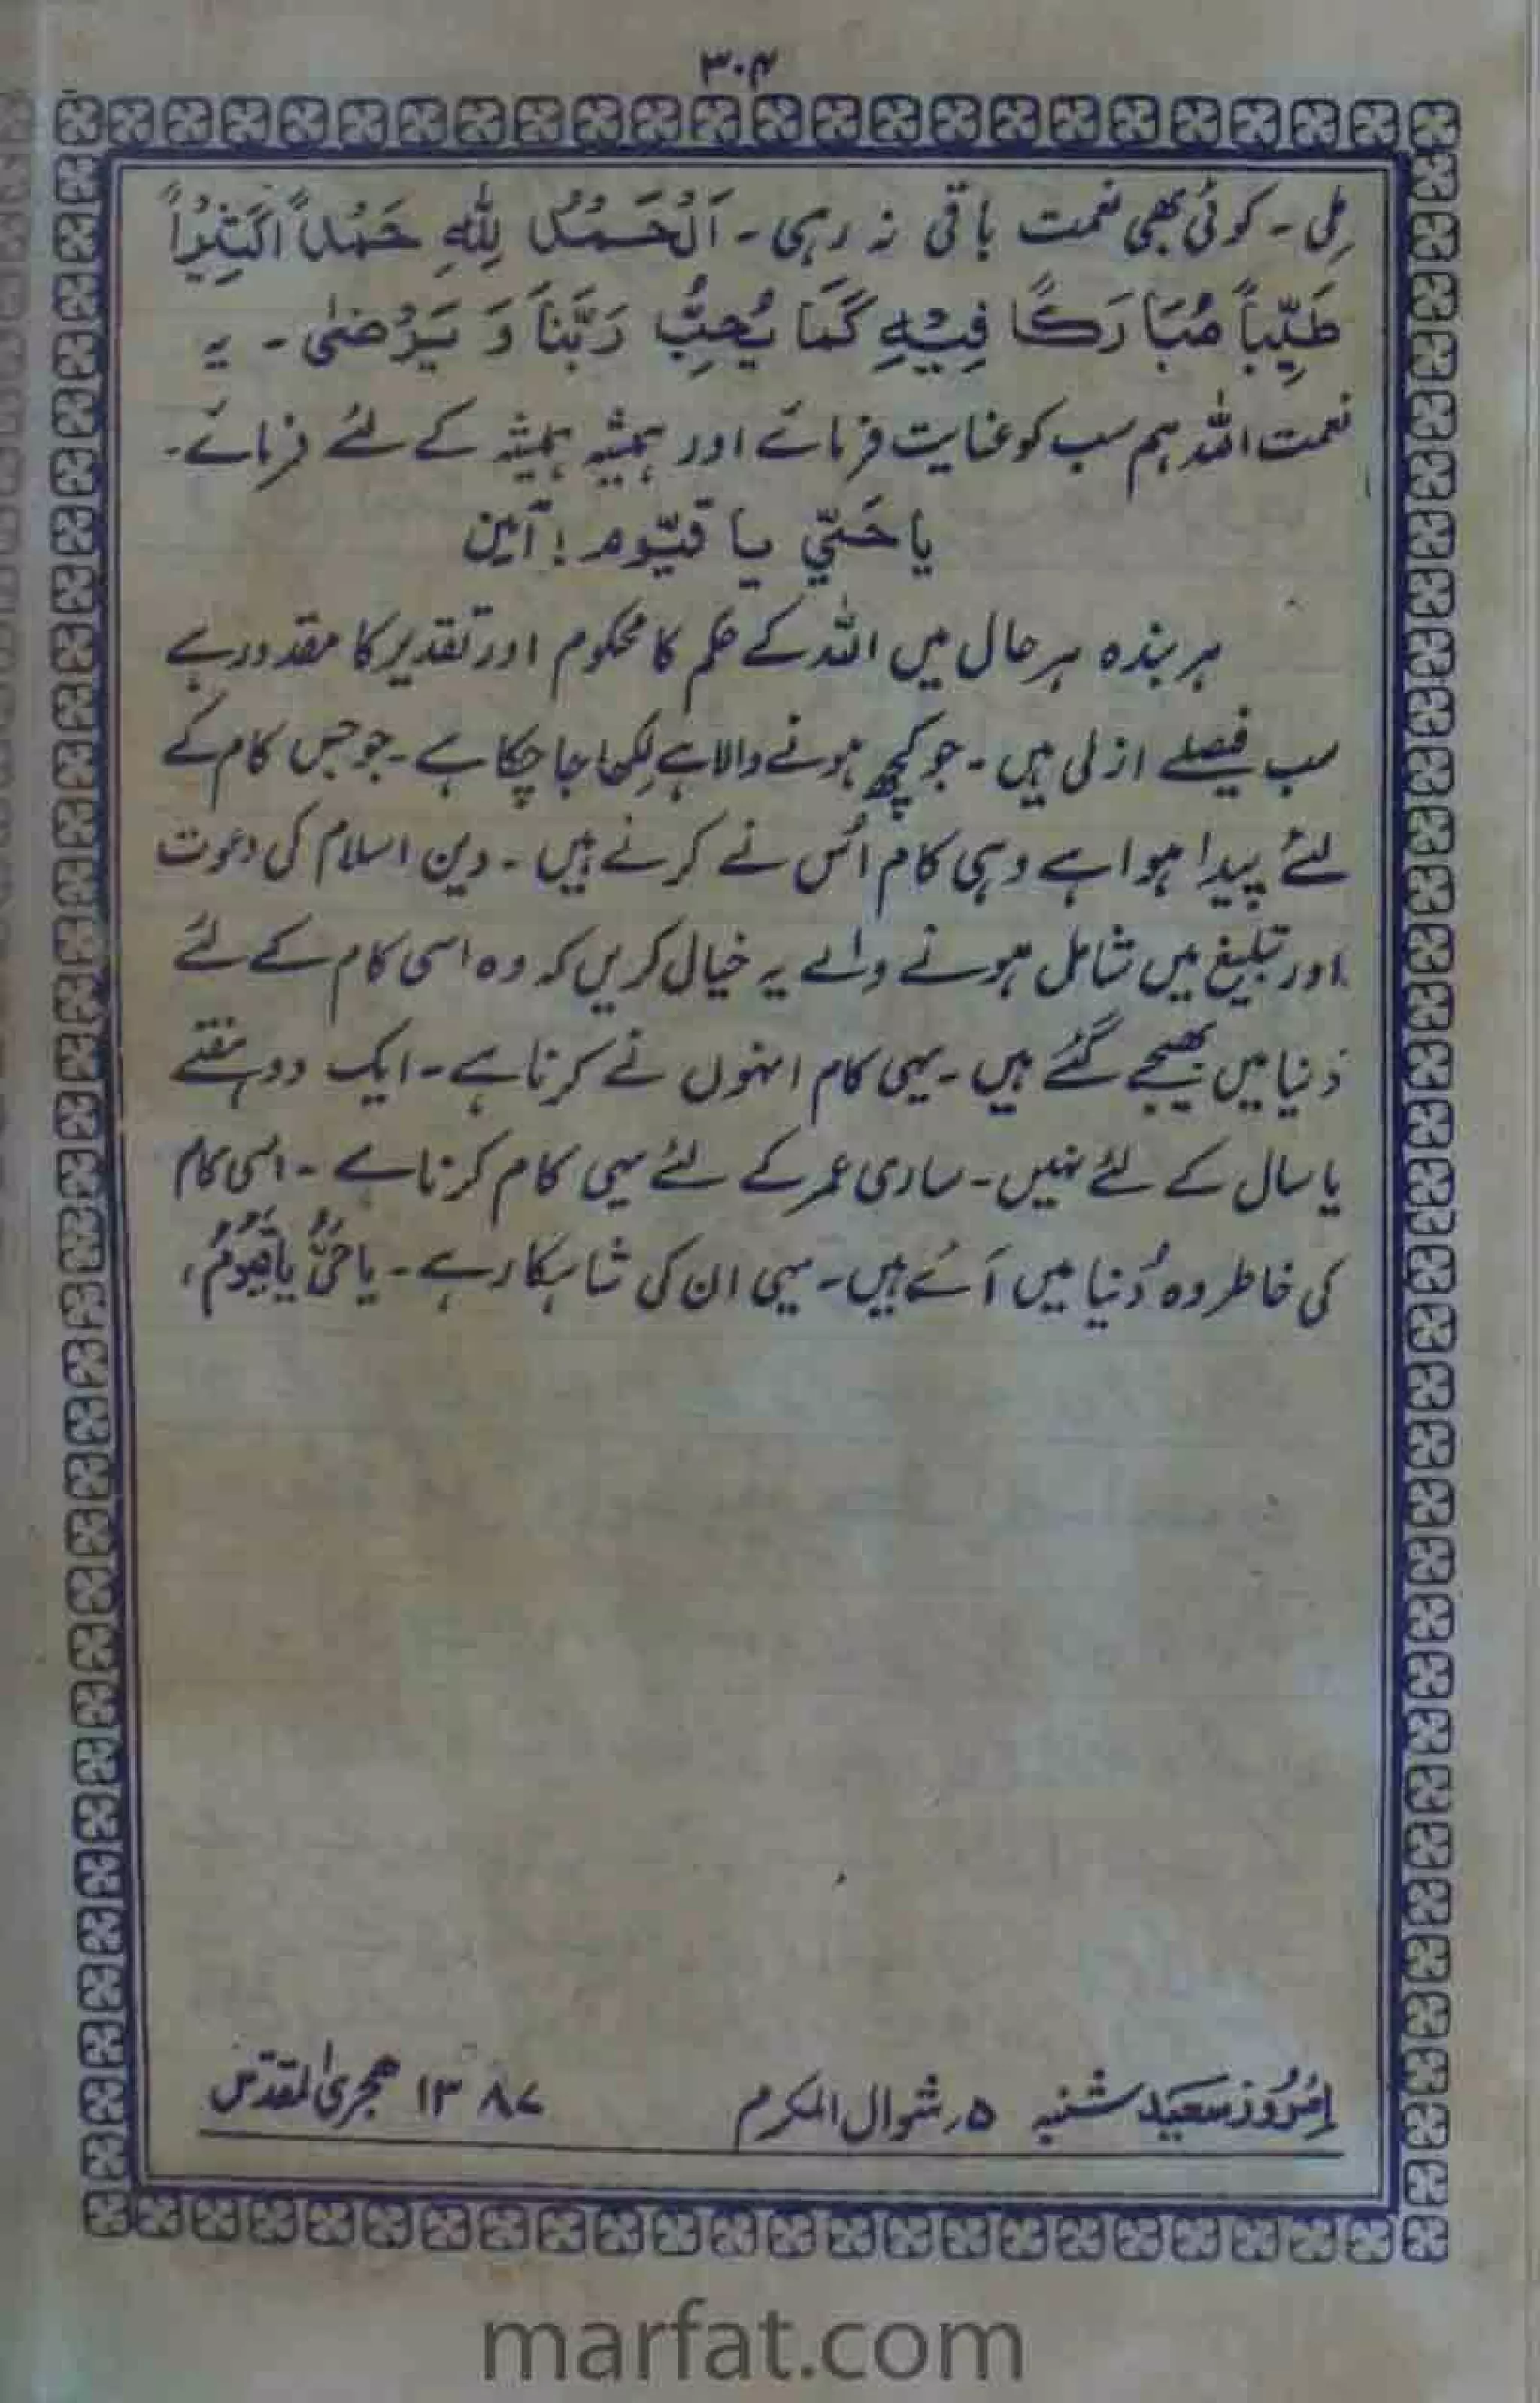 ۳۰۴
مِلی ۔ کوئی بھی نعمت باقی نہ رہی ۔ اَلْحَمْدُ لِلّٰهِ حَمْدًا کَثِیْرًا
طَیِّبًا مُبَارَکًا فِیْهِ کَمَا یُحِبُّ رَبُّنَا وَ یَرْضٰی ۔ یہ
نعمت اللہ ہم سب کو عنایت فرمائے اور ہمیشہ ہمیشہ کے لئے فرمائے۔
یا حَیّی یا قیّوم ! آمین
ہر بندہ ہر حال میں اللہ کے حکم کا محکوم اور تقدیر کا مقدور ہے
سب فیصلے ازلی ہیں ۔ جو کچھ ہونے والا ہے لکھا جا چکا ہے ۔ جو جس کام کے
لئے پیدا ہوا ہے وہی کام اُس نے کرنے ہیں ۔ دین اسلام کی دعوت
اور تبلیغ میں شامل ہونے والے یہ خیال کریں کہ وہ اسی کام کے لئے
دُنیا میں بھیجے گئے ہیں ۔ یہی کام انہوں نے کرنا ہے ۔ ایک دو ہفتے
یا سال کے لئے نہیں ۔ ساری عمر کے لئے یہی کام کرنا ہے ۔ اسی کام
کی خاطر وہ دُنیا میں آئے ہیں ۔ یہی ان کی شاہکار ہے ۔ یَا حَیُّ یَا قَیُّوْمُ،
اِمْرُوز سَعِید شنبہ ۵ر شوال المکرم ۱۳۸۷ ھجریٰ المقدّس
marfat.com